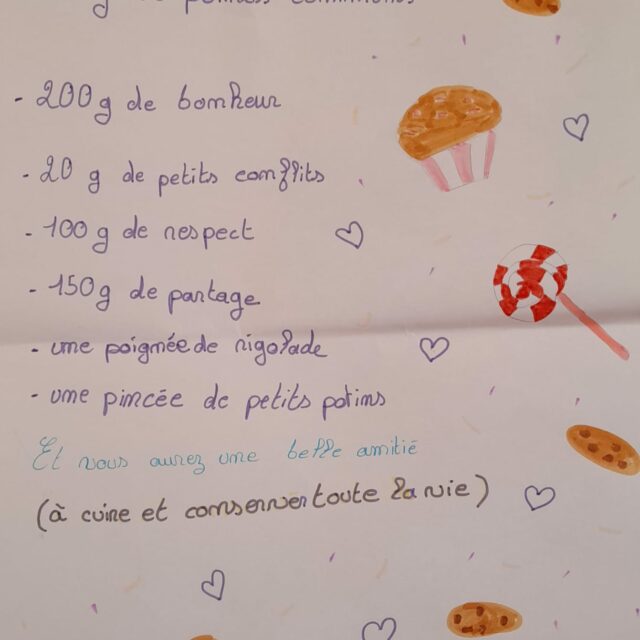 - 200g de bonheur
- 20 g de petits conflits
- 100g de respect
- 150g de partage
- une poignée de rigolade
- une pincée de petits potins
Et vous aurez une belle amitié
(à cuire et conserver toute la vie)